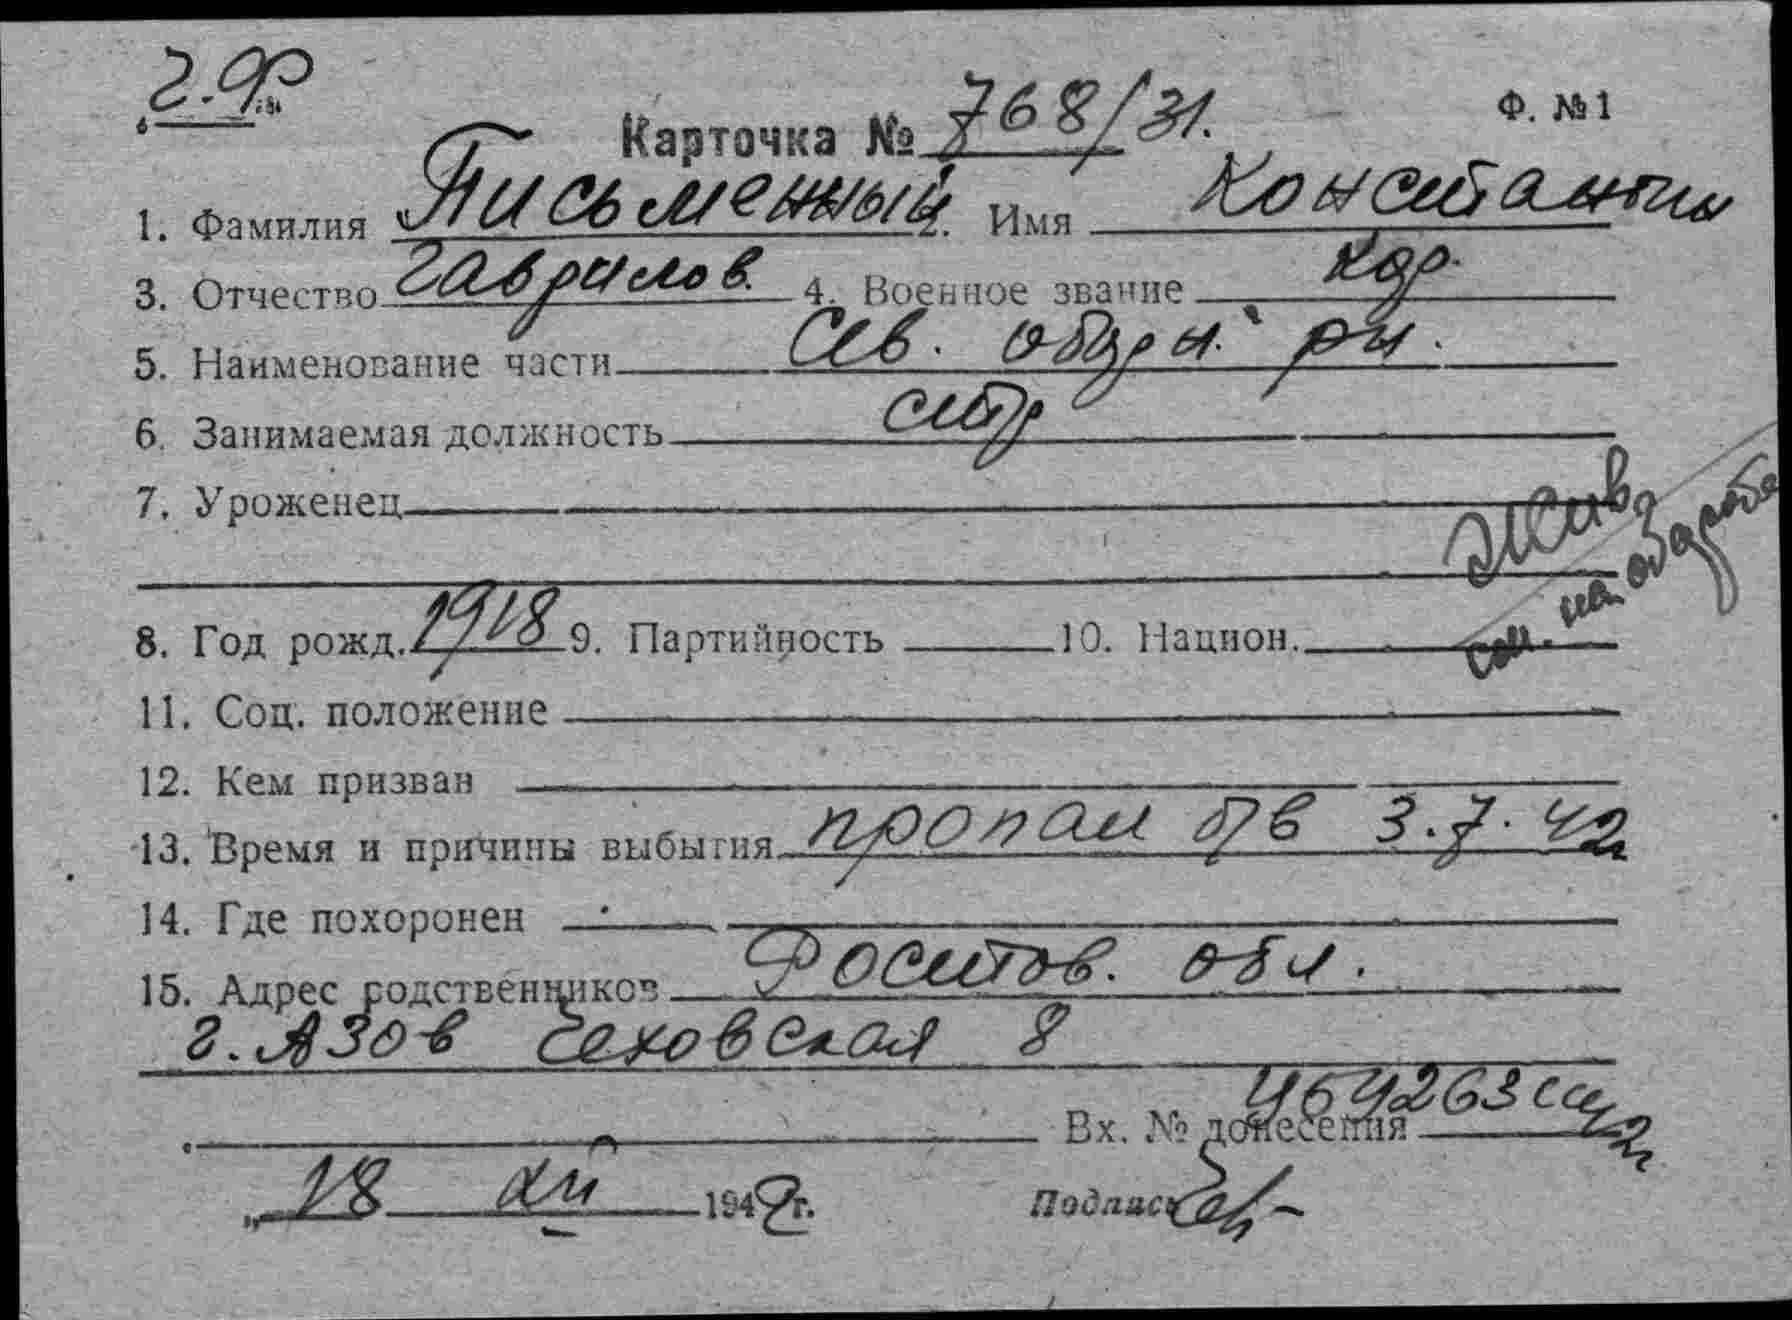 г. Ф
Карточка № 768/31. Ф. №1
1. Фамилия Письменный 2. Имя Константин
3. Отчество Гаврилов. 4. Военное звание Кр.
5. Наименование части Сев. оборон. рн.
6. Занимаемая должность стр
7. Уроженец
Жив
см. на обороте
8. Год рожд. 1918 9. Партийность 10. Национ.
11. Соц. положение
12. Кем призван
13. Время и причины выбытия пропал б/в 3.7.42
14. Где похоронен
15. Адрес родственников Ростов. обл.
г. Азов Чеховская 8
Вх. № донесения
18 XII 1942 г. Подпись